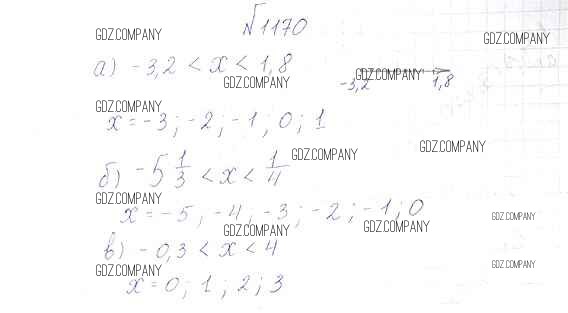 №1170
GDZ.COMPANY GDZ.COMPANY
а) -3,2 < x < 1,8
GDZ.COMPANY GDZ.COMPANY
-3,2 1,8
GDZ.COMPANY
x = -3; -2; -1; 0; 1
GDZ.COMPANY GDZ.COMPANY
б) -5 1/3 < x < 1/4
GDZ.COMPANY
x = -5; -4; -3; -2; -1; 0
GDZ.COMPANY GDZ.COMPANY GDZ.COMPANY
в) -0,3 < x < 4
GDZ.COMPANY GDZ.COMPANY
x = 0; 1; 2; 3